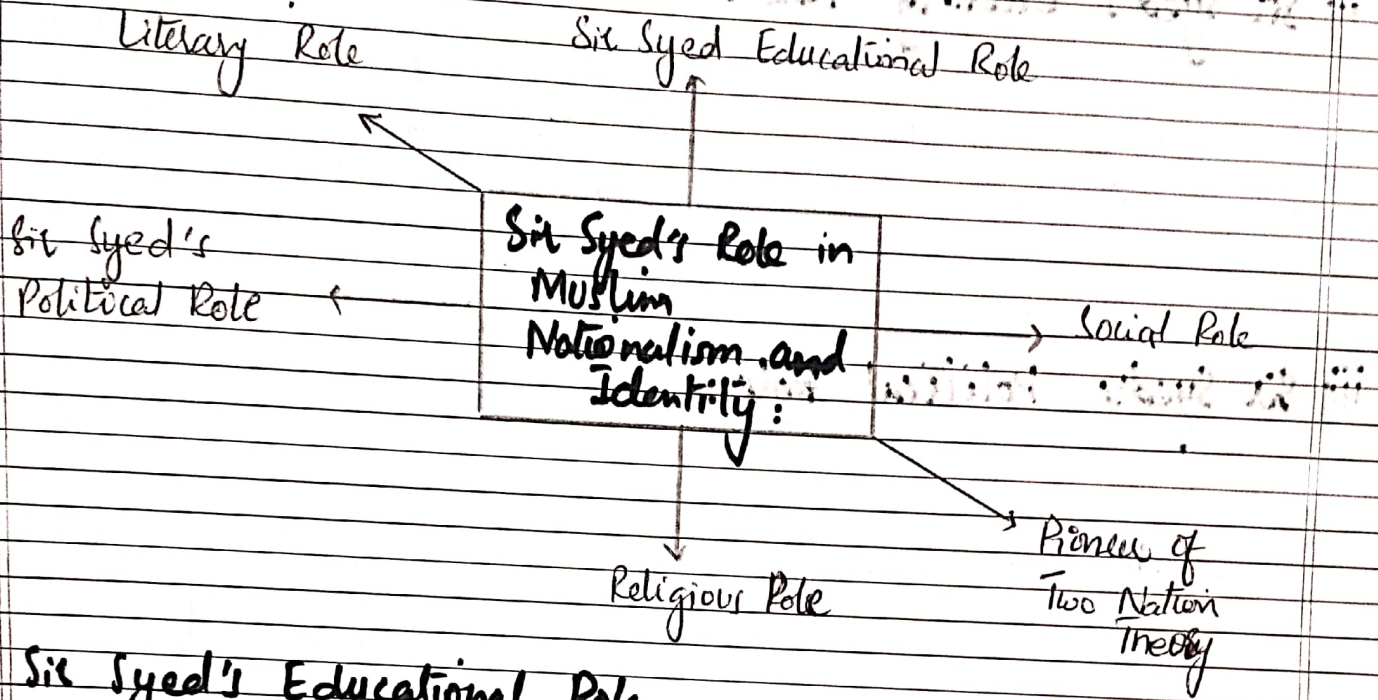 Literary Role
Sir Syed Educational Role
Sir Syed's
Political Role
Sir Syed's Role in
Muslim
Nationalism and
Identity:
Social Role
Religious Role
Pioneer of
Two Nation
Theory
Sir Syed's Educational Role